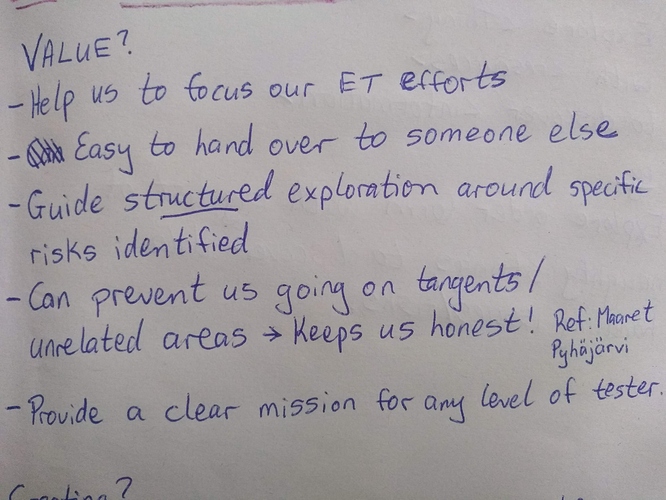 VALUE?
- Help us to focus our ET efforts
- Easy to hand over to someone else
- Guide structured exploration around specific
risks identified
- Can prevent us going on tangents/
unrelated areas → Keeps us honest! Ref: Maaret
Pyhäjärvi
- Provide a clear mission for any level of tester.